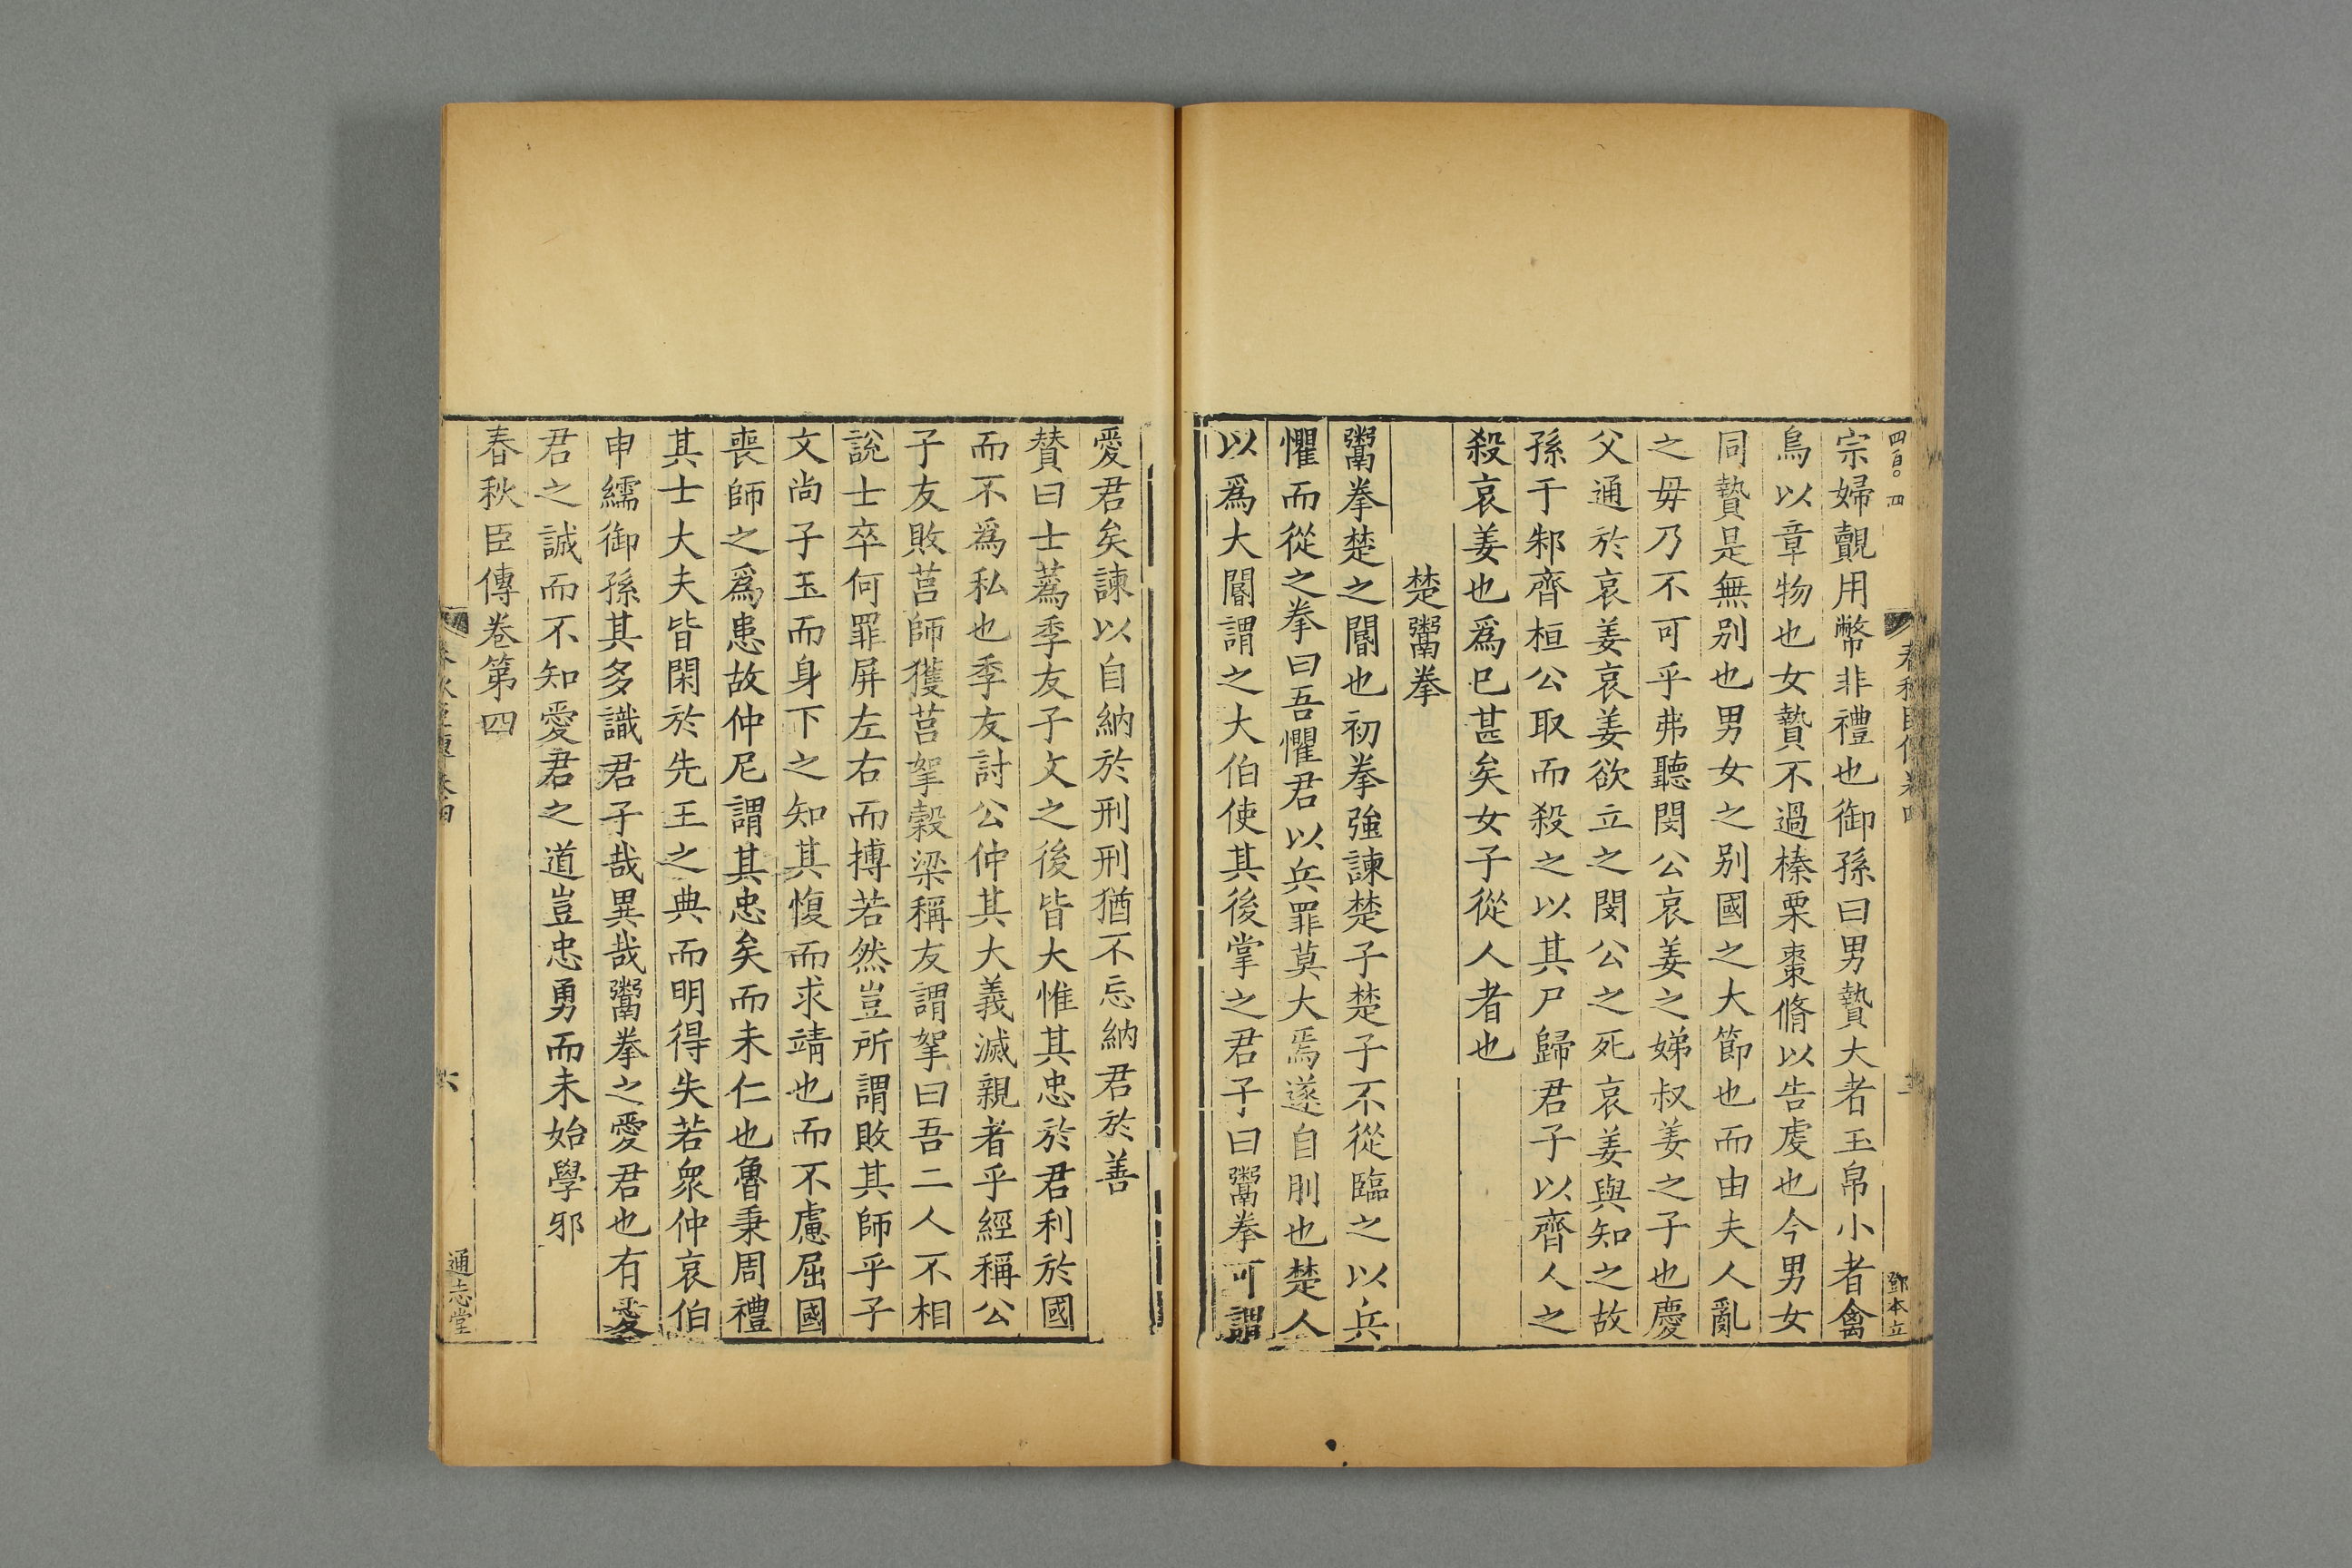 四百〇四
春秋臣傳卷四
鄧本立
宗婦覿用幣非禮也御孫曰男贄大者玉帛小者禽
鳥以章物也女贄不過榛栗棗脩以告虔也今男女
同贄是無别也男女之别國之大節也而由夫人亂
之毋乃不可乎弗聽閔公哀姜之娣叔姜之子也慶
父通於哀姜哀姜欲立之閔公之死哀姜與知之故
孫于邾齊桓公取而殺之以其尸歸君子以齊人之
殺哀姜也爲已甚矣女子從人者也
楚鬻拳
鬻拳楚之閽也初拳強諫楚子楚子不從臨之以兵
懼而從之拳曰吾懼君以兵罪莫大焉遂自刖也楚人
以爲大閽謂之大伯使其後掌之君子曰鬻拳可謂
愛君矣諫以自納於刑刑猶不忘納君於善
賛曰士蔿季友子文之後皆大惟其忠於君利於國
而不爲私也季友討公仲其大義滅親者乎經稱公
子友敗莒師獲莒挐穀梁稱友謂挐曰吾二人不相
說士卒何罪屏左右而搏若然豈所謂敗其師乎子
文尚子玉而身下之知其愎而求靖也而不慮屈國
喪師之爲患故仲尼謂其忠矣而未仁也魯秉周禮
其士大夫皆閑於先王之典而明得失若衆仲哀伯
申繻御孫其多識君子哉異哉鬻拳之愛君也有愛
君之誠而不知愛君之道豈忠勇而未始學邪
春秋臣傳卷第四
春秋臣傳卷四
六
通志堂